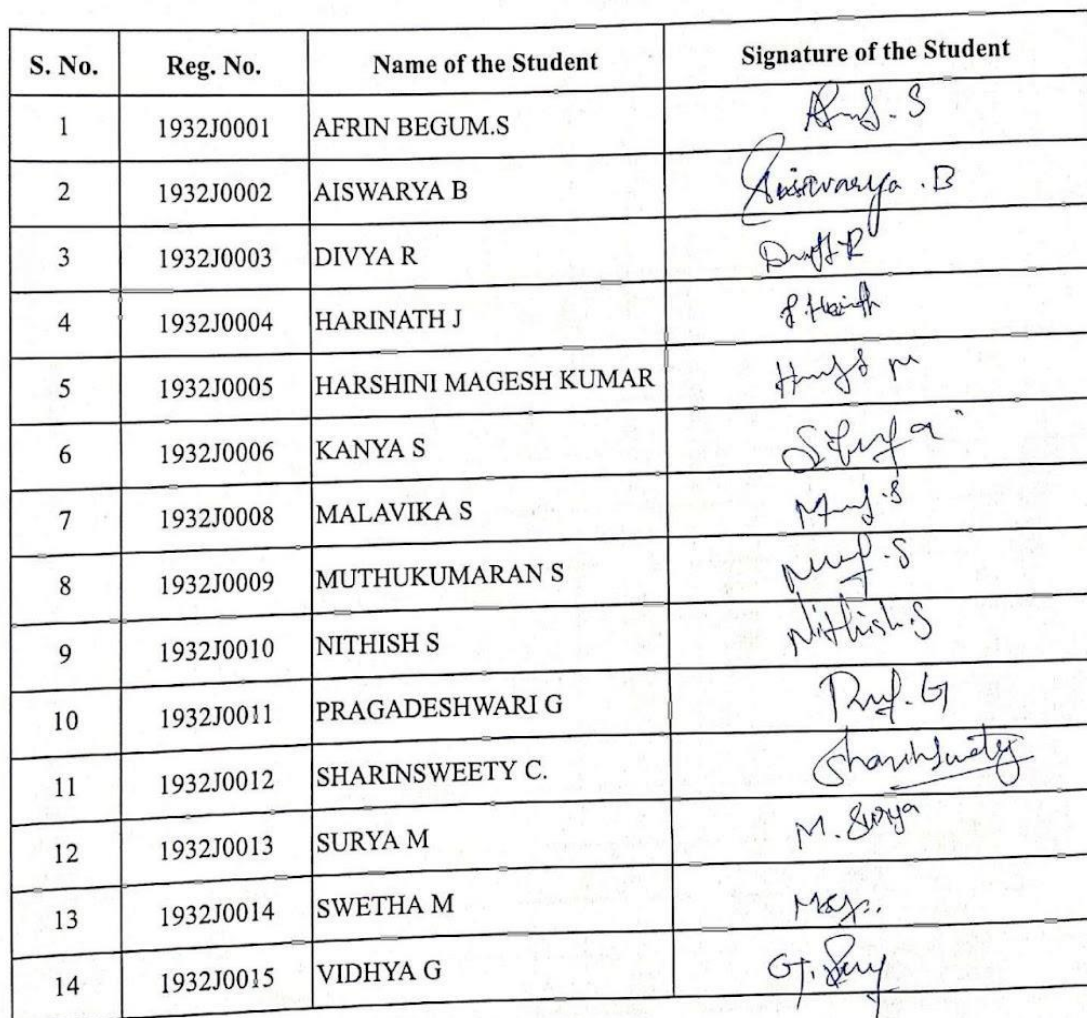 S. No. Reg. No. Name of the Student Signature of the Student
1 1932J0001 AFRIN BEGUM.S
2 1932J0002 AISWARYA B Aisswarya . B
3 1932J0003 DIVYA R
4 1932J0004 HARINATH J J. Harinath
5 1932J0005 HARSHINI MAGESH KUMAR
6 1932J0006 KANYA S
7 1932J0008 MALAVIKA S
8 1932J0009 MUTHUKUMARAN S
9 1932J0010 NITHISH S Nithish.S
10 1932J0011 PRAGADESHWARI G
11 1932J0012 SHARINSWEETY C. Sharinsweety
12 1932J0013 SURYA M M. Surya
13 1932J0014 SWETHA M
14 1932J0015 VIDHYA G